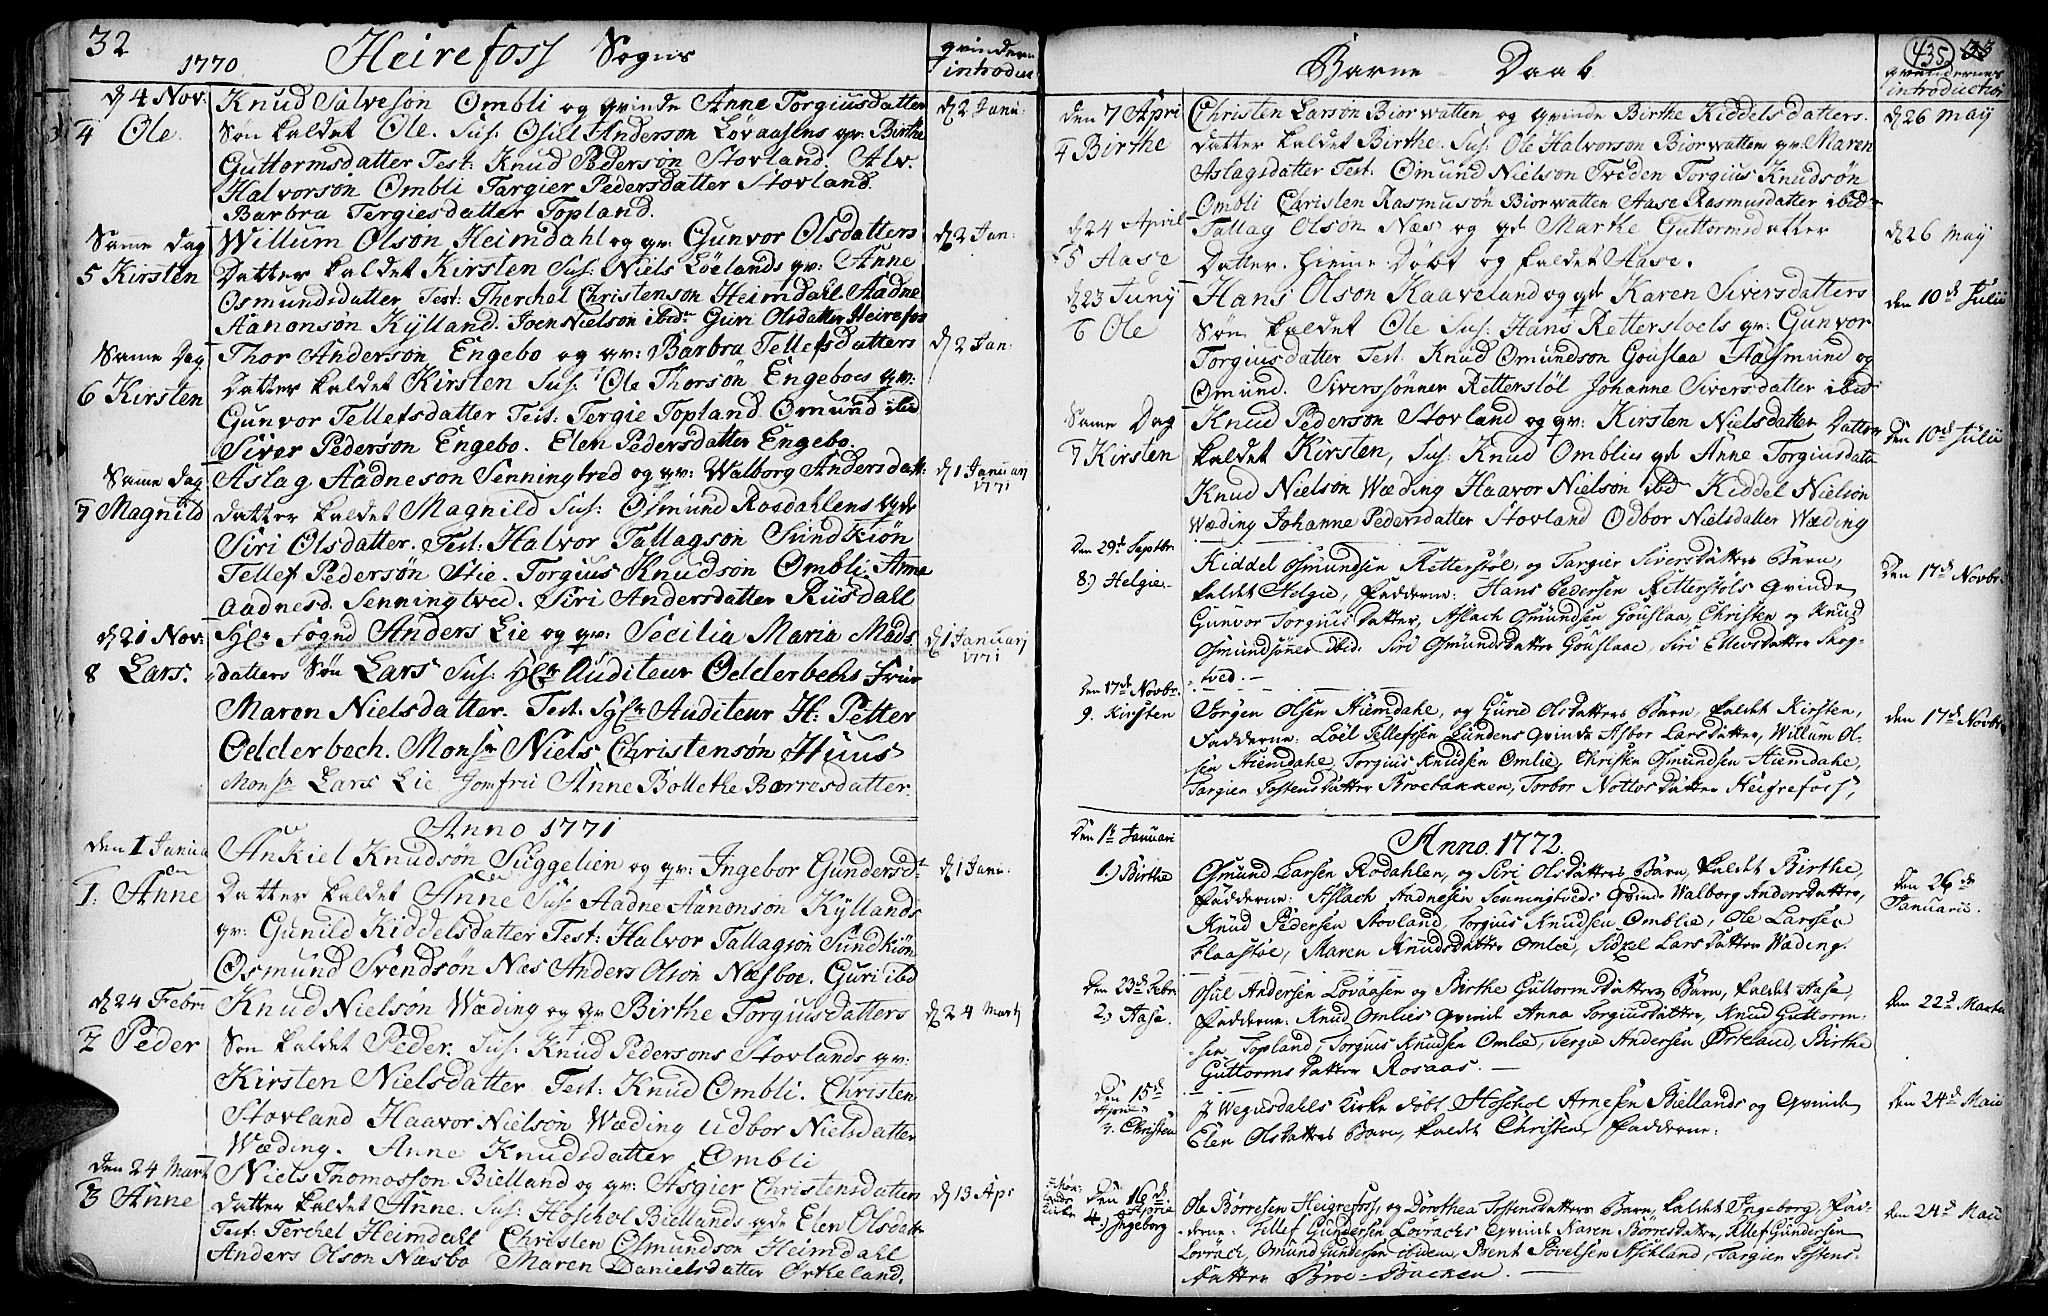 32
1770. Heirefoss Sogns
qvindern
introduc
d 4 Nov: Knud Salveson Ombli og qvinde Anne Torgiusdatter d 2 Janu:
4 Ole. Søn kaldet Ole. Sus: Osill Anderson Løvaasens qv: Birthe
Guttormsdatter Test: Knud Pederson Stovland. Alv.
Halvorson Ombli Targier Pedersdatter Stovland.
Barbra Tergiesdatter Topland.
Same dag Willum Olson Heimdahl og qv: Gunvor Olsdatters d 2 Jan:
5 Kirsten Datter kaldet Kirsten Sus: Niels Løelands qv: Anne
Osmundsdatter, Test: Therchel Christenson Heimdahl Aadne
Aanonsøn Kylland. Joen Nielson ibd: Guri Olsdatter Heirefos
Same Dag Thor Anderson Engebo og qv: Barbra Tellefsdatters d 2 Jan:
6 Kirsten Datter kaldet Kirsten Sus: Ole Thorsøn Engeboes qv:
Gunvor Tellefsdatter Test: Tergie Topland Omund ibd
Siver Pederson Engebo. Elen Pedersdatter Engebo.
Same dag Aslag Aadneson Senningtved og qv: Walborg Andersdatt: d 1 Januari 1771
7 Magnild datter kaldet Magnild Sus: Osmund Rosdahlens qde
Siri Olsdatter. Test: Halvor Tallagson Sundkiøn
Tellef Pedersøn Stie. Torgius Knudson Ombli. Anne
Aadnesd. Senningtved. Siri Andersdatter Riisdall
d 21 Nov: Hr: Fogd Anders Lie og qv: Secilia Maria Mads d 1 Januarj 1771
8 Lars. datters Søn Lars Sus: Hr Auditeur Odderbechs Frue
Maren Nielsdatter. Test. Hr Auditeur H: Petter
Odderbech. Monsr Niels Christensøn Huus
Monsr Lars Lie Jomfru Anne Bolleke Borresdatter.
Anno 1771
den 1 Janua Ankiel Knudsøn Suggelien og qv: Ingebor Gundersdt d 1 Janu:
1. Anne Datter kaldet Anne Sus: Aadne Aanonson Kyllands
qv: Gunild Kiddelsdatter Test: Halvor Tallagson Sundkiøn
Osmund Svendsøn Næs Anders Olson Næsboe. Guri ibd
d 24 Febru Knud Nielsøn Wæding og qv Birthe Torgiusdatters d 24 Martj
2 Peder Søn kaldet Peder. Sus: Knud Pedersons Stovlands qv:
Kirsten Nielsdatter. Test: Knud Ombli. Christen
Stovland Haavor Nielson Wæding udbor Nielsdatter
Wæding. Anne Knudsdatter Ombli
den 24 Mart Niels Thomosson Bielland og qv: Asgier Christensdatten d 13 Apr
3 Anne datter kaldet Anne. Sus: Hoschol Biellands qde Elen Olsdatt
Test: Terchel Heimdahl Christen Osmundson Heimdahl
Anders Olson Næsbo Maren Danielsdatter Ørkeland.
Barne Daab
435 33
qvindernes
introduction
den 7 Apri Christen Larsøn Biorwatten og qvinde Birthe Kiddelsdatters. d 26 May
4 Birthe datter kaldet Birthe. Sus: Ole Halvorson Biorwatten qv: Maren
Aslagsdatter Test: Omund Nielson Treden Torgius Knudsøn
Ombli Christen Rasmusøn Biorwatten Aase Rasmusdatter ibid
d 24 April Tallag Olson Næs og qde Marthe Guttormsdatter d 26 May
5 Aase Datter. hieme Døbt og kaldet Aase.
d 23 Junj Hans Olson Kaaveland og qde Karen Siversdatters den 10d Julii
6 Ole Søn kaldet Ole Sus: Hans Retterstoels qv: Gunvor
Torgiusdatter Test: Knud Omundson Gouslaa Aasmund og
Omund. Siverssønner Retterstøl Johanne Siversdatter ibid
Same Dag Knud Pederson Stovland og qv: Kirsten Nielsdatter Datter den 10d Julii
7 Kirsten kaldet Kirsten, Sus: Knud Omblius qde Anne Torgiusdatte
Knud Nielson Wæding Haavor Nielson ibd Kiddel Nielson
Wæding Johanne Pedersdatter Stovland Odbor Nielsdatter Wæding
Den 29d Septbr Kiddel Osmundsen Retterstøl, og Targier Siversdatters Barn, Den 17d Novbr.
8.) Helgie. kaldet Helgie, Fadderne: Hans Pedersen Rettersthøls Qvinde
Gunvor Torgiusdatter, Aslach Osmundsen Gouslaa, Christen og Knud
Osmundsøner ibid: Siri Osmundsdatter Gouslaae, Siri Ellevsdatter Skog-
tved.
Den 17de Novbr. Jørgen Olsen Hiemdahl, og Gurie Olsdatters Barn, kaldet Kirsten, den 17d Novbr
9. Kirsten Fadderne: Loel Tellefsen Lundens Qvinde Asbor Larsdatter, Willum Ol-
sen Hiemdahl, Torgius Knudsen Omlie, Christen Osmundsen Hiemdahl,
Targier Tostensdatter Broebakken, Torbor Nottosdatter Heigrefoss,
Anno. 1772.
Den 1t Januari Osmund Larsen Rosdahlen, og Siri Olsdatters Barn, kaldet Birthe, Den 26d Januarii.
1.) Birthe Fadderne: Aslach Aadnesen Senningtveds Qvinde Walborg Andersdatter,
Knud Pedersen Stovland, Torgius Knudsen Omblie, Ole Larssen
Flaastøe, Maren Knudsdatter Omlie, Sidsel Larsdatter Wæding.
Den 23d Febr Osul Andersen Lovaasen og Birthe Guttormsdatters Barn, kaldet Aase, den 22d Martii
2.) Aase. Fadderne: Knud Omlies Qvinde Anna Torgiusdatter, Knud Guttorm-
sen Topland, Torgius Knudsen Omlie, Tergie Andersen Ørkeland, Birthe
Guttormsdatter Rosaas.
Den 15d April J Wegusdahls Kirke døbt Hoschol Arnesen Biellands og Qvinde den 24d Maii
3. Christen Elen Olsdatters Barn, kaldet Christen, Fadderne:
Den 16d April Ole Børresen Heigrefoss, og Dorothea Tostensdatters Barn kaldet Ingeborg, Fad- den 24d Maii
4. Ingeborg derne: Tellef Gundersen Lovrachs Qvinde Karen Børresdatter, Tellef Gundersen
Lovrach, Omund Gundersen ibidem, Bent Povelsen Askland, Targier Tostens-
datter Broe-Backen.